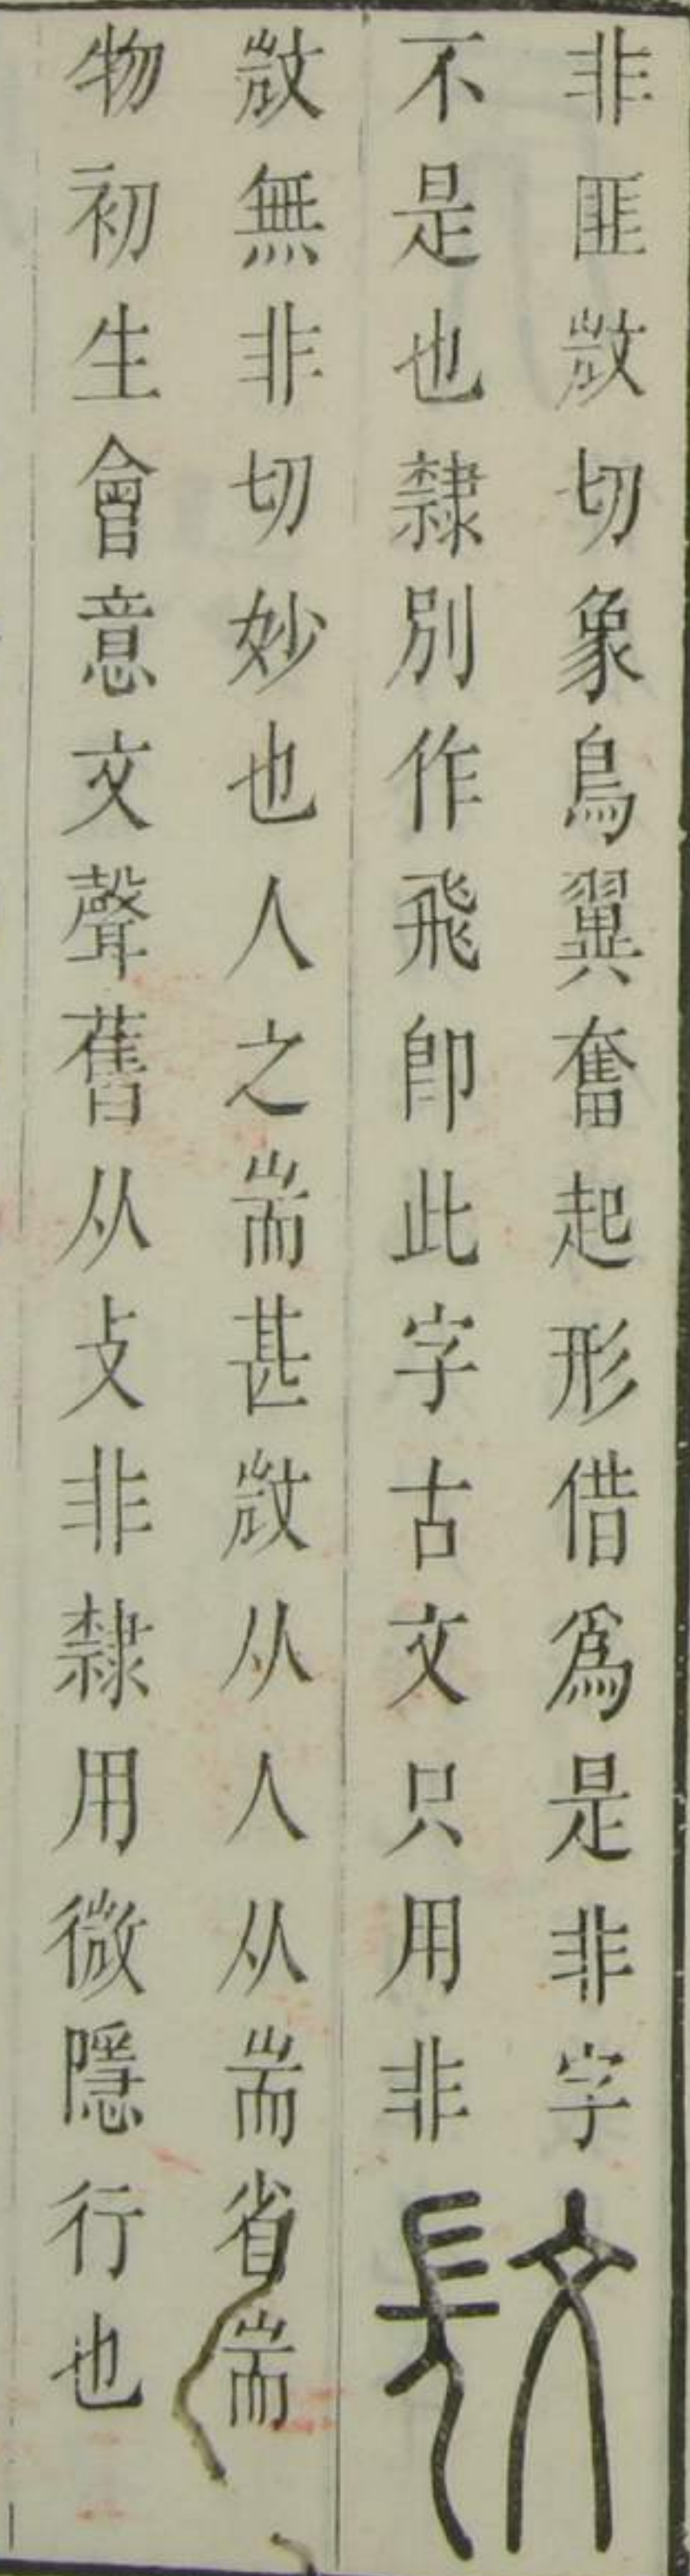 非匪敳切象鳥翼奮起形借爲是非字
不是也隸別作飛卽此字古文只用非
敳無非切妙也人之耑甚敳从人从耑省耑
物初生會意文聲舊从攴非隸用微隱行也